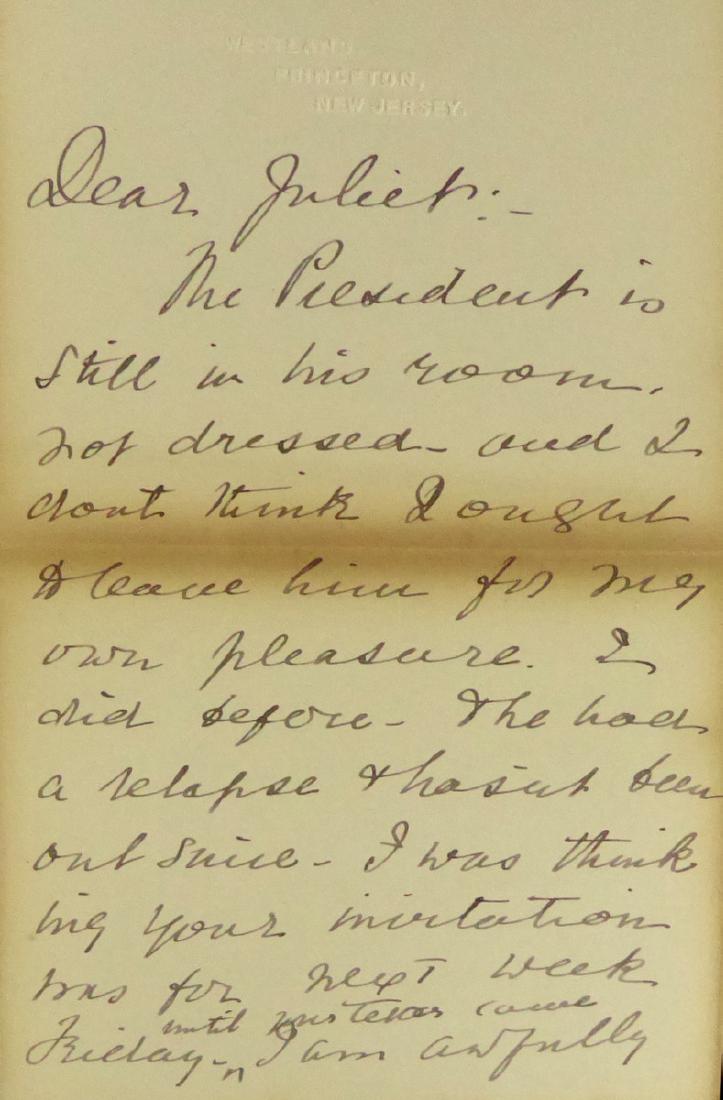 WESTLAND
PRINCETON,
NEW JERSEY.
Dear Juliet:-
The President is
still in his room,
not dressed - and I
dont think I ought
to leave him for my
own pleasure. I
did before - & he had
a relapse & hasn't been
out since - I was think
ing your invitation
was for next week
until your texas came
Friday - I am awfully